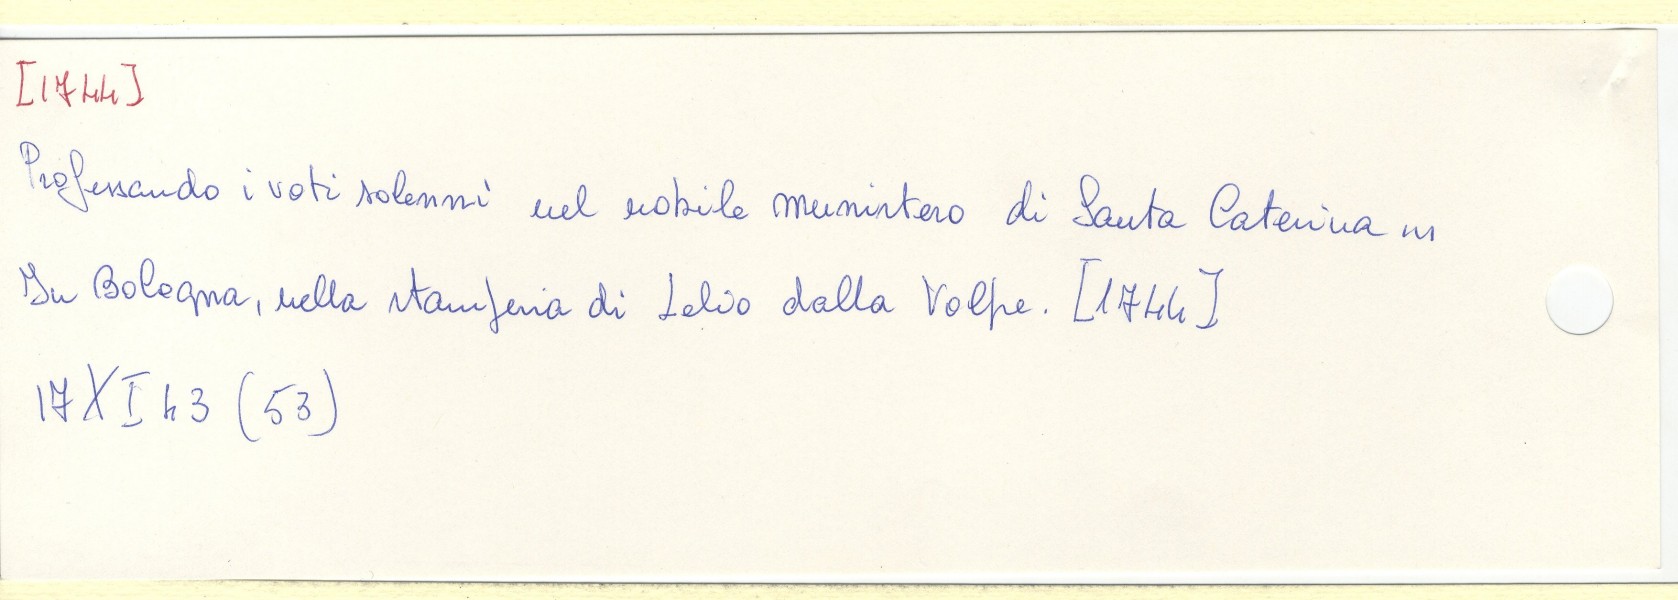 [1744]
Professando i voti solenni nel nobile munistero di Santa Caterina in
In Bologna, nella stamperia di Lelio dalla Volpe. [1744]
17 XI 43 (53)